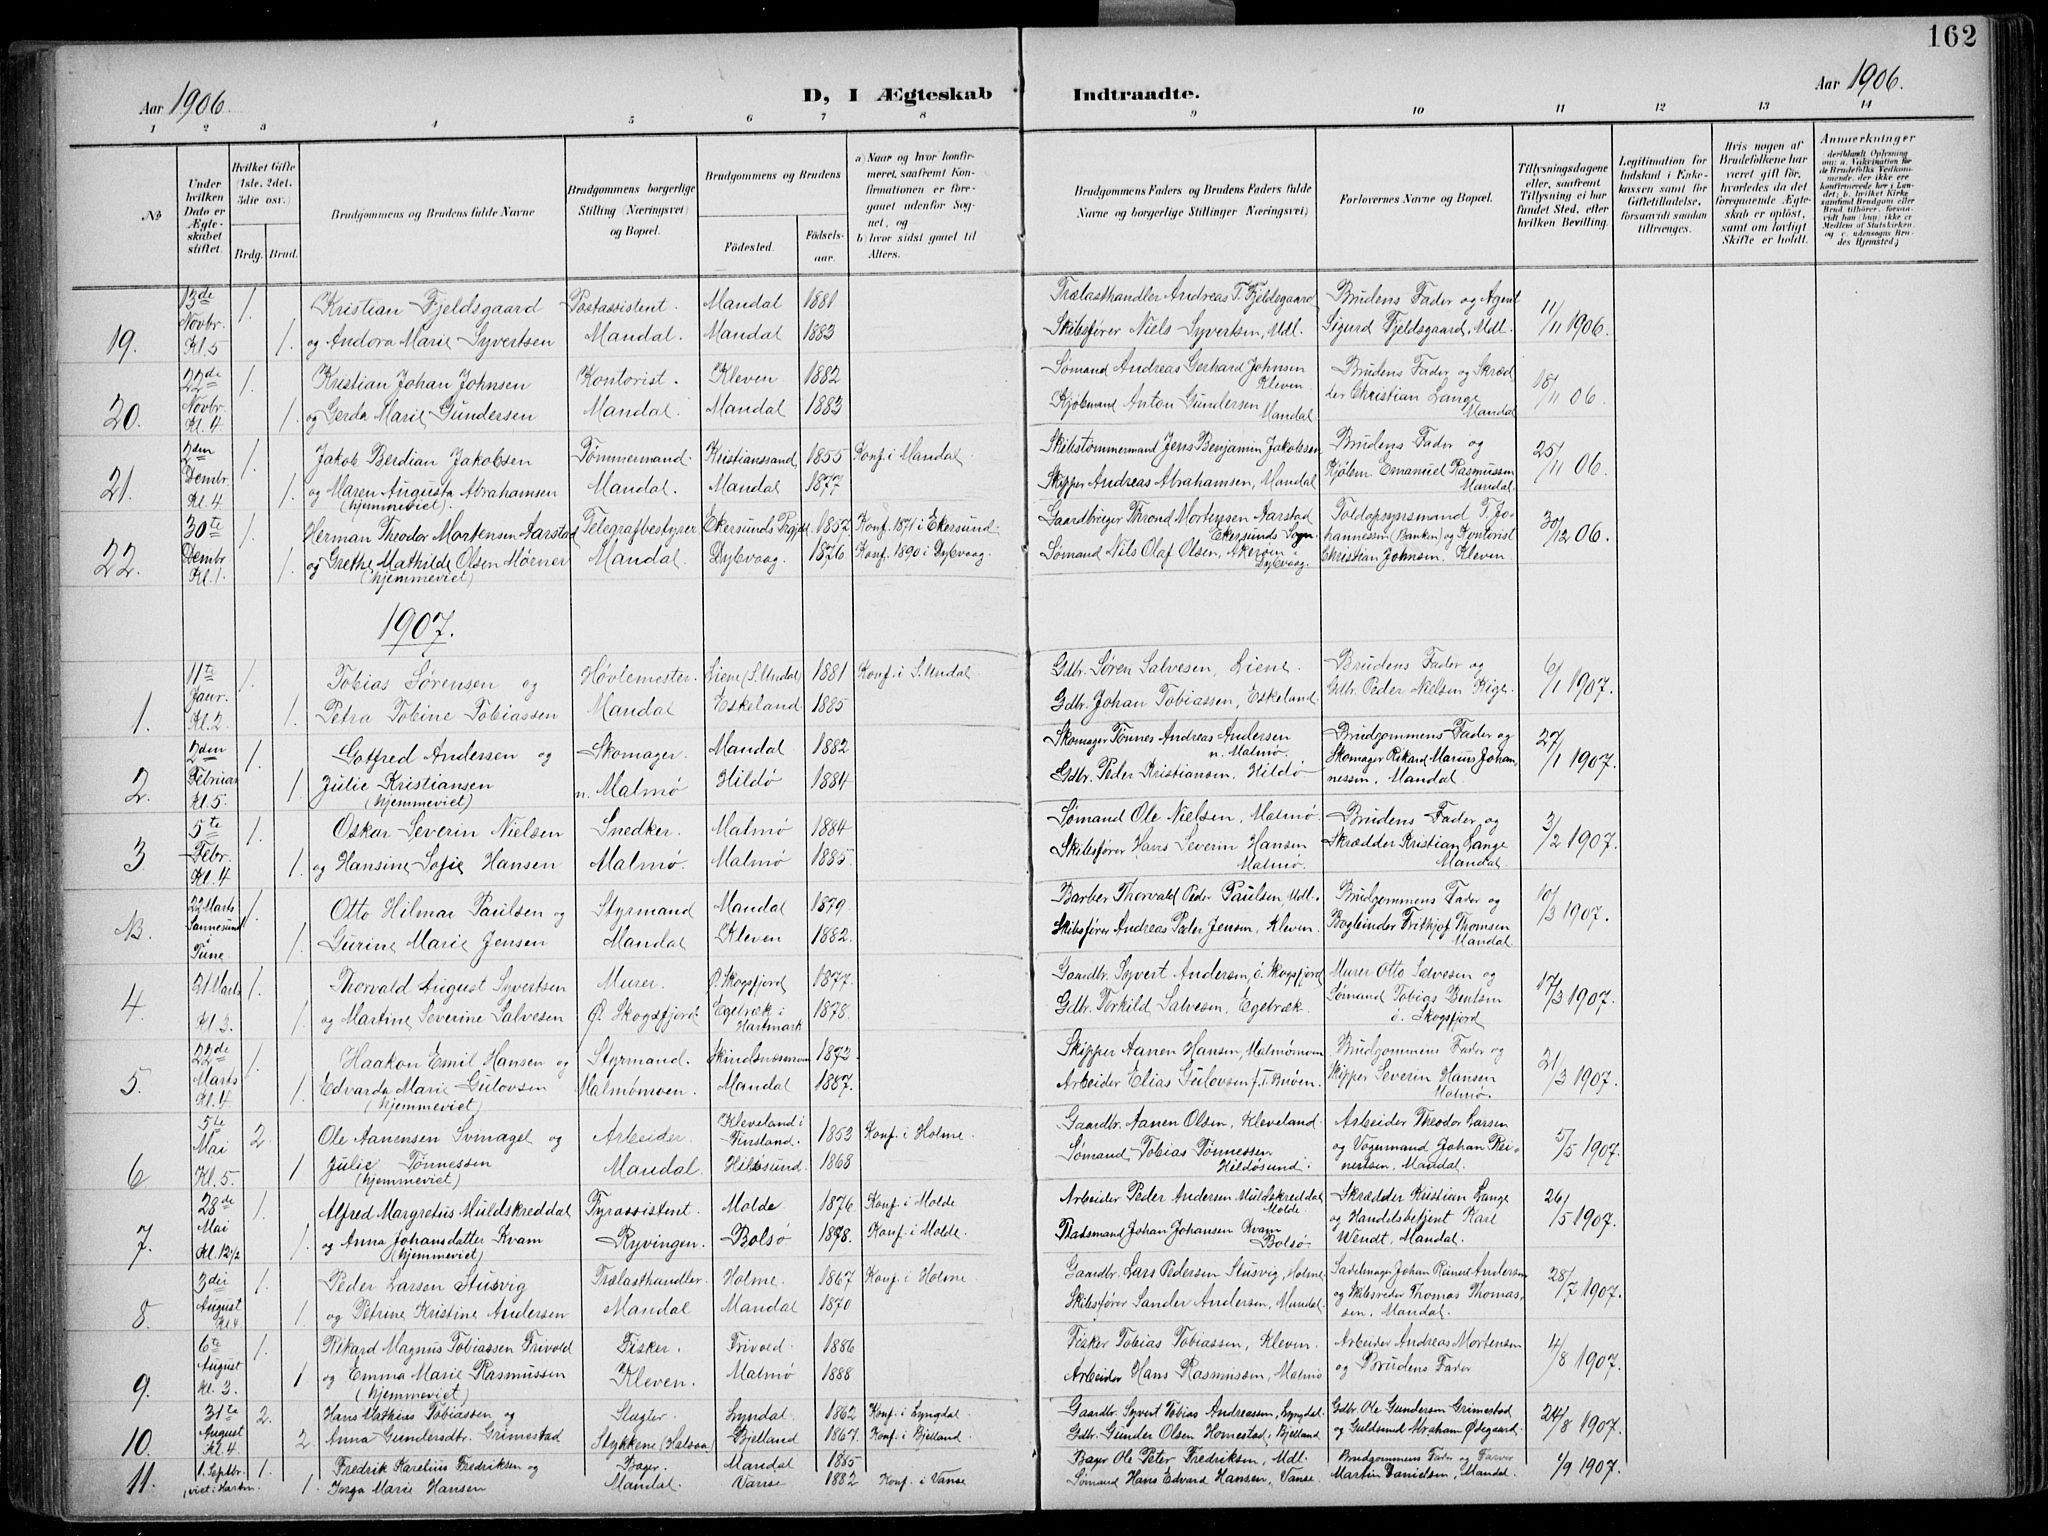 162
Aar 1906. D, I Ægteskab Indtraadte. Aar 1906.
1 2 3 4 5 6 7 8 9 10 11 12 13 14
№
Under hvilken Dato er Ægteskabet stiftet.
Hvilket Gifte (1ste, 2det, 3die osv.)
Brdg. Brud.
Brudgommens og Brudens fulde Navne
Brudgommens borgerlige Stilling (Næringsvei) og Bopæl.
Brudgommens og Brudens
Födested. Födsels-aar.
a) Naar og hvor konfirmeret, saafremt Konfirmationen er foregaaet udenfor Sognet, og
b) hvor sidst gaaet til Alters.
Brudgommens Faders og Brudens Faders fulde Navne og borgerlige Stillinger Næringsvei)
Forlovernes Navne og Bopæl.
Tillysningsdagene eller, saafremt Tillysning ei har fundet Sted, efter hvilken Bevilling.
Legitimation for Indskud i Enkekassen samt for Giftetilladelse, forsaavidt saadan tiltrænges.
Hvis nogen af Brudefolkene har været gift för, hvorledes da det foregaaende Ægteskab er oplöst, samt om lovligt Skifte er holdt.
Anmerkninger
19. 13de Novbr. Kl. 5 1. Kristian Fjeldsgaard Postassistent. Mandal 1881 Trælasthandler Andreas T. Fjeldsgaard Brudens Fader og Agent 11/11 1906.
1. og Andora Marie Syvertsen Mandal. Mandal 1883 Skibsfører Niels Syvertsen, Mdl. Sigurd Fjeldsgaard, Mdl.
20. 22de Novbr. Kl. 4 1. Kristian Johan Johnsen Kontorist. Kleven 1882 Sømand Andreas Gerhard Johnsen Kleven Brudens Fader og Skræd 18/11 06.
1. og Gerda Marie Gundersen Mandal. Mandal 1883 Kjøbmand Anton Gundersen Mandal der Christian Lange Mandal
21. 2den Dembr. Kl. 4 1. Jakob Berdian Jakobsen Tømmermand. Kristianssand 1855 Konf. i Mandal Skibstømmermand Jens Benjamin Jakobsen Brudens Fader og 25/11 06.
1. og Maren Augusta Abrahamsen (hjemmeviet). Mandal. Mandal 1877 Skipper Andreas Abrahamsen, Mandal Kjøbm. Emanuel Rasmussen Mandal.
22. 30te Dembr. Kl. 1. 1. Herman Theodor Mortensen Aarstad Telegrafbestyrer Ekersunds Prgjld. 1857. Konf. 1871 i Ekersund. Gaardbruger Thrond Mortensen Aarstad Ekersunds Sogn. Toldopsynsmand T. Jo- 30/12 06.
1. og Grethe Mathilde Olsen Mørner (hjemmeviet) Mandal. Dybvaag. 1876 Konf. 1890 i Dybvaag. Sømand Nils Olaf Olsen, Akerøen i Dybvaag. hannessen (Banken) og Kontorist Christian Johnsen. Kleven.
1907.
1. 11te Janr. Kl. 2. 1. Tobias Sørensen og Høvlemester. Liene (S. Undal) 1881 Konf. i S. Undal. Gdbr. Søren Salvesen, Liene. Brudens Fader og 6/1 1907.
1. Petra Tobine Tobiassen Mandal Eskeland 1885 Gdbr. Johan Tobiassen, Eskeland. Gdbr. Peder Nielsen Kige.
2. 2den Februar Kl. 5. 1. Gotfred Andersen og Skomager. Mandal 1882 Skomager Tønnes Andreas Andersen n. Malmø. Brudgommens Fader og 27/1 1907.
1. Julie Kristiansen (hjemmeviet) n. Malmø Hildø 1884 Gdbr. Peder Kristiansen. Hildø Skomager Rikard Marius Johannessen, Mandal.
3 5te Febr. Kl. 4 1. Oskar Severin Nielsen Snedker. Malmø 1884 Sømand Ole Nielsen, Malmø. Brudens Fader og 3/2 1907.
1. og Hansine Sofie Hansen Malmø. Malmø 1885. Skibsfører Hans Severin Hansen Malmø. Skrædder Kristian Lange Mandal
B. 22 Marts Sannesund i Tune 1. Otto Hilmar Paulsen og Styrmand Mandal 1879. Barber Thorvald Peder Paulsen, Mdl. Brudgommens Fader og 10/3 1907.
1. Gurine Marie Jensen Mandal Kleven 1882. Skibsfører Andreas Peder Jensen, Kleven Bogbinder Frithjof Thomsen Mandal
4 31 Marts Kl. 3. 1. Thorvald August Syvertsen Murer. Ø. Skogsfjord 1877. Gaardbr. Syvert Andersen, ö. Skogsfjord Murer Otto Salvesen og 17/3 1907.
1. og Martine Severine Salvesen Ø. Skogsfjord Egebræk i Hartmark 1878. Gdbr. Torkild Salvesen, Egebræk. Sømand Tobias Bentsen ö. Skogsfjord
5 22de Marts Kl. 4 1. Haakon Emil Hansen og Styrmand. Skindsnæsmoen 1872. Skipper Aanen Hansen, Malmømoen Brudgommens Fader og 21/3 1907.
1. Edvarda Marie Gulovsen (hjemmeviet) Malmømoen. Mandal 1887. Arbeider Elias Gulovsen f. T. Buøen. Skipper Severin Hansen Malmø.
6 5te Mai Kl. 5. 2. Ole Aanensen Svinagel og Arbeider. Kleveland i Finsland. 1853 Konf. i Holme. Gaardbr. Aanen Olsen, Kleveland Arbeider Theodor Larsen 5/5 1907.
1 Julie Tønnessen (hjemmeviet) Mandal. Hildøsund. 1868 Sømand Tobias Tønnessen Hildøsund. og Vognmand Johan Reinertsen, Mandal.
7. 28de Mai Kl. 12½ 1. Alfred Margretus Muldskreddal Fyrassistent. Molde 1876. Konf. i Molde Arbeider Peder Andersen Muldskreddal Molde. Skrædder Kristian Lange 26/5 1907.
1. og Anna Johansdatter Kvam (hjemmeviet) Ryvingen. Bolsø 1878. Konf. i Molde. Pladsmand Johan Johansen Kvam Bolsø. og Handelsbetjent Karl Wendt, Mandal.
8. 3die August Kl. 4. 1. Peder Larsen Stusvig Trælasthandler. Holme. 1867 Konf. i Holme Gaardbr. Lars Pedersen Stusvig, Holme Sadelmager Johan Reinert Andersen 28/7 1907.
1. og Petrine Kristine Andersen Mandal Mandal 1870 Skibsfører Sander Andersen, Mandal. og Skibsreder Thomas Thomassen, Mandal.
9. 6te August Kl. 3. 1. Rikard Magnus Tobiassen Frivold Fisker. Frivold. 1886 Fisker Tobias Tobiassen, Kleven. Arbeider Andreas Mortensen 4/8 1907.
1 og Emma Marie Rasmussen (hjemmeviet) Kleven. Malmø 1888 Arbeider Hans Rasmussen, Malmø og Brudens Fader
10. 31te August Kl. 4 2. Hans Mathias Tobiassen og Slagter. Lyngdal 1862 Konf. i Lyngdal Gaardbr. Syvert Tobias Andreassen, Lyngdal. Gdbr. Ole Gundersen Grimestad 24/8 1907.
2. Anna Gundersdtr. Grimestad Stykkene (Halsaa) Bjelland 1867. Konf. i Bjelland. Gdbr. Gunder Olsen Homestad, Bjelland og Guldsmed Abraham Ødegaard.
11. 1. Septbr. viet i Hartm. 1. Fredrik Karelius Fredriksen og Bager. Mandal 1885 Bager Ole Peter Fredriksen, Mdl. Brudgommens Fader og Farver 1/9 1907.
1. Inga Marie Hansen Mandal. Vanse 1882 Konf. i Vanse Sømand Hans Edvard Hansen, Vanse. Martin Danielsen, Mandal.